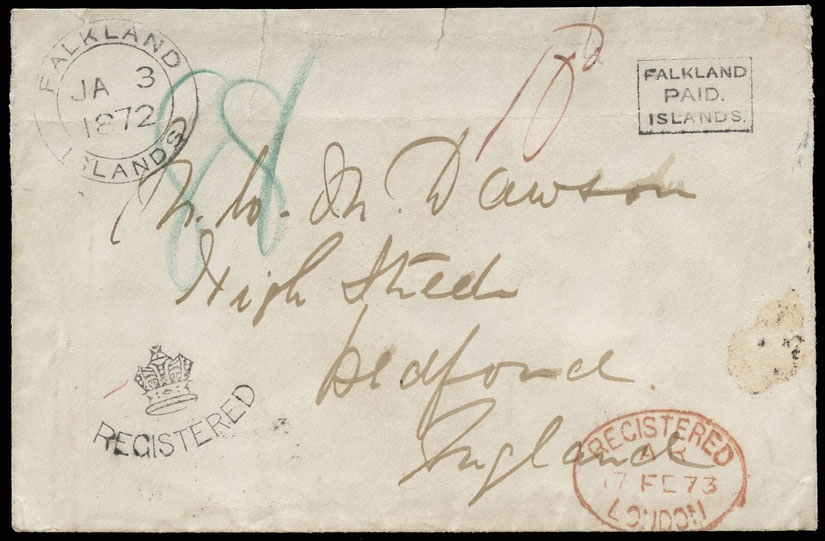 FALKLAND
JA 3
1872
ISLANDS
88
10d
FALKLAND
PAID.
ISLANDS.
M. Dawson
High Street
Bedford.
England
REGISTERED
REGISTERED
AR
17 FE 73
LONDON